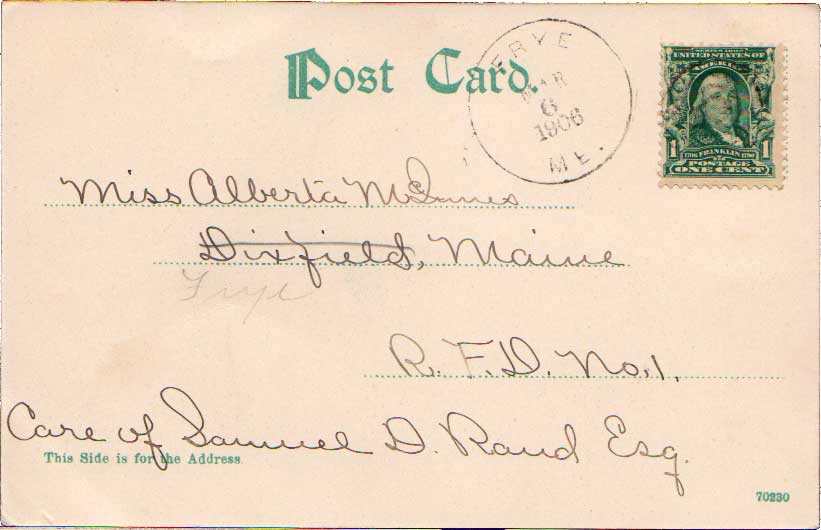 Post Card.
FRYE
MAR
6
1906
ME.
SERIES 1902
UNITED STATES OF
AMERICA
1 1706 FRANKLIN 1790 1
POSTAGE
ONE CENT
Miss Alberta McInnes
Dixfield, Maine
Frye
R. F. D. No. 1.
Care of Samuel D. Rand Esq.
This Side is for the Address.
70230